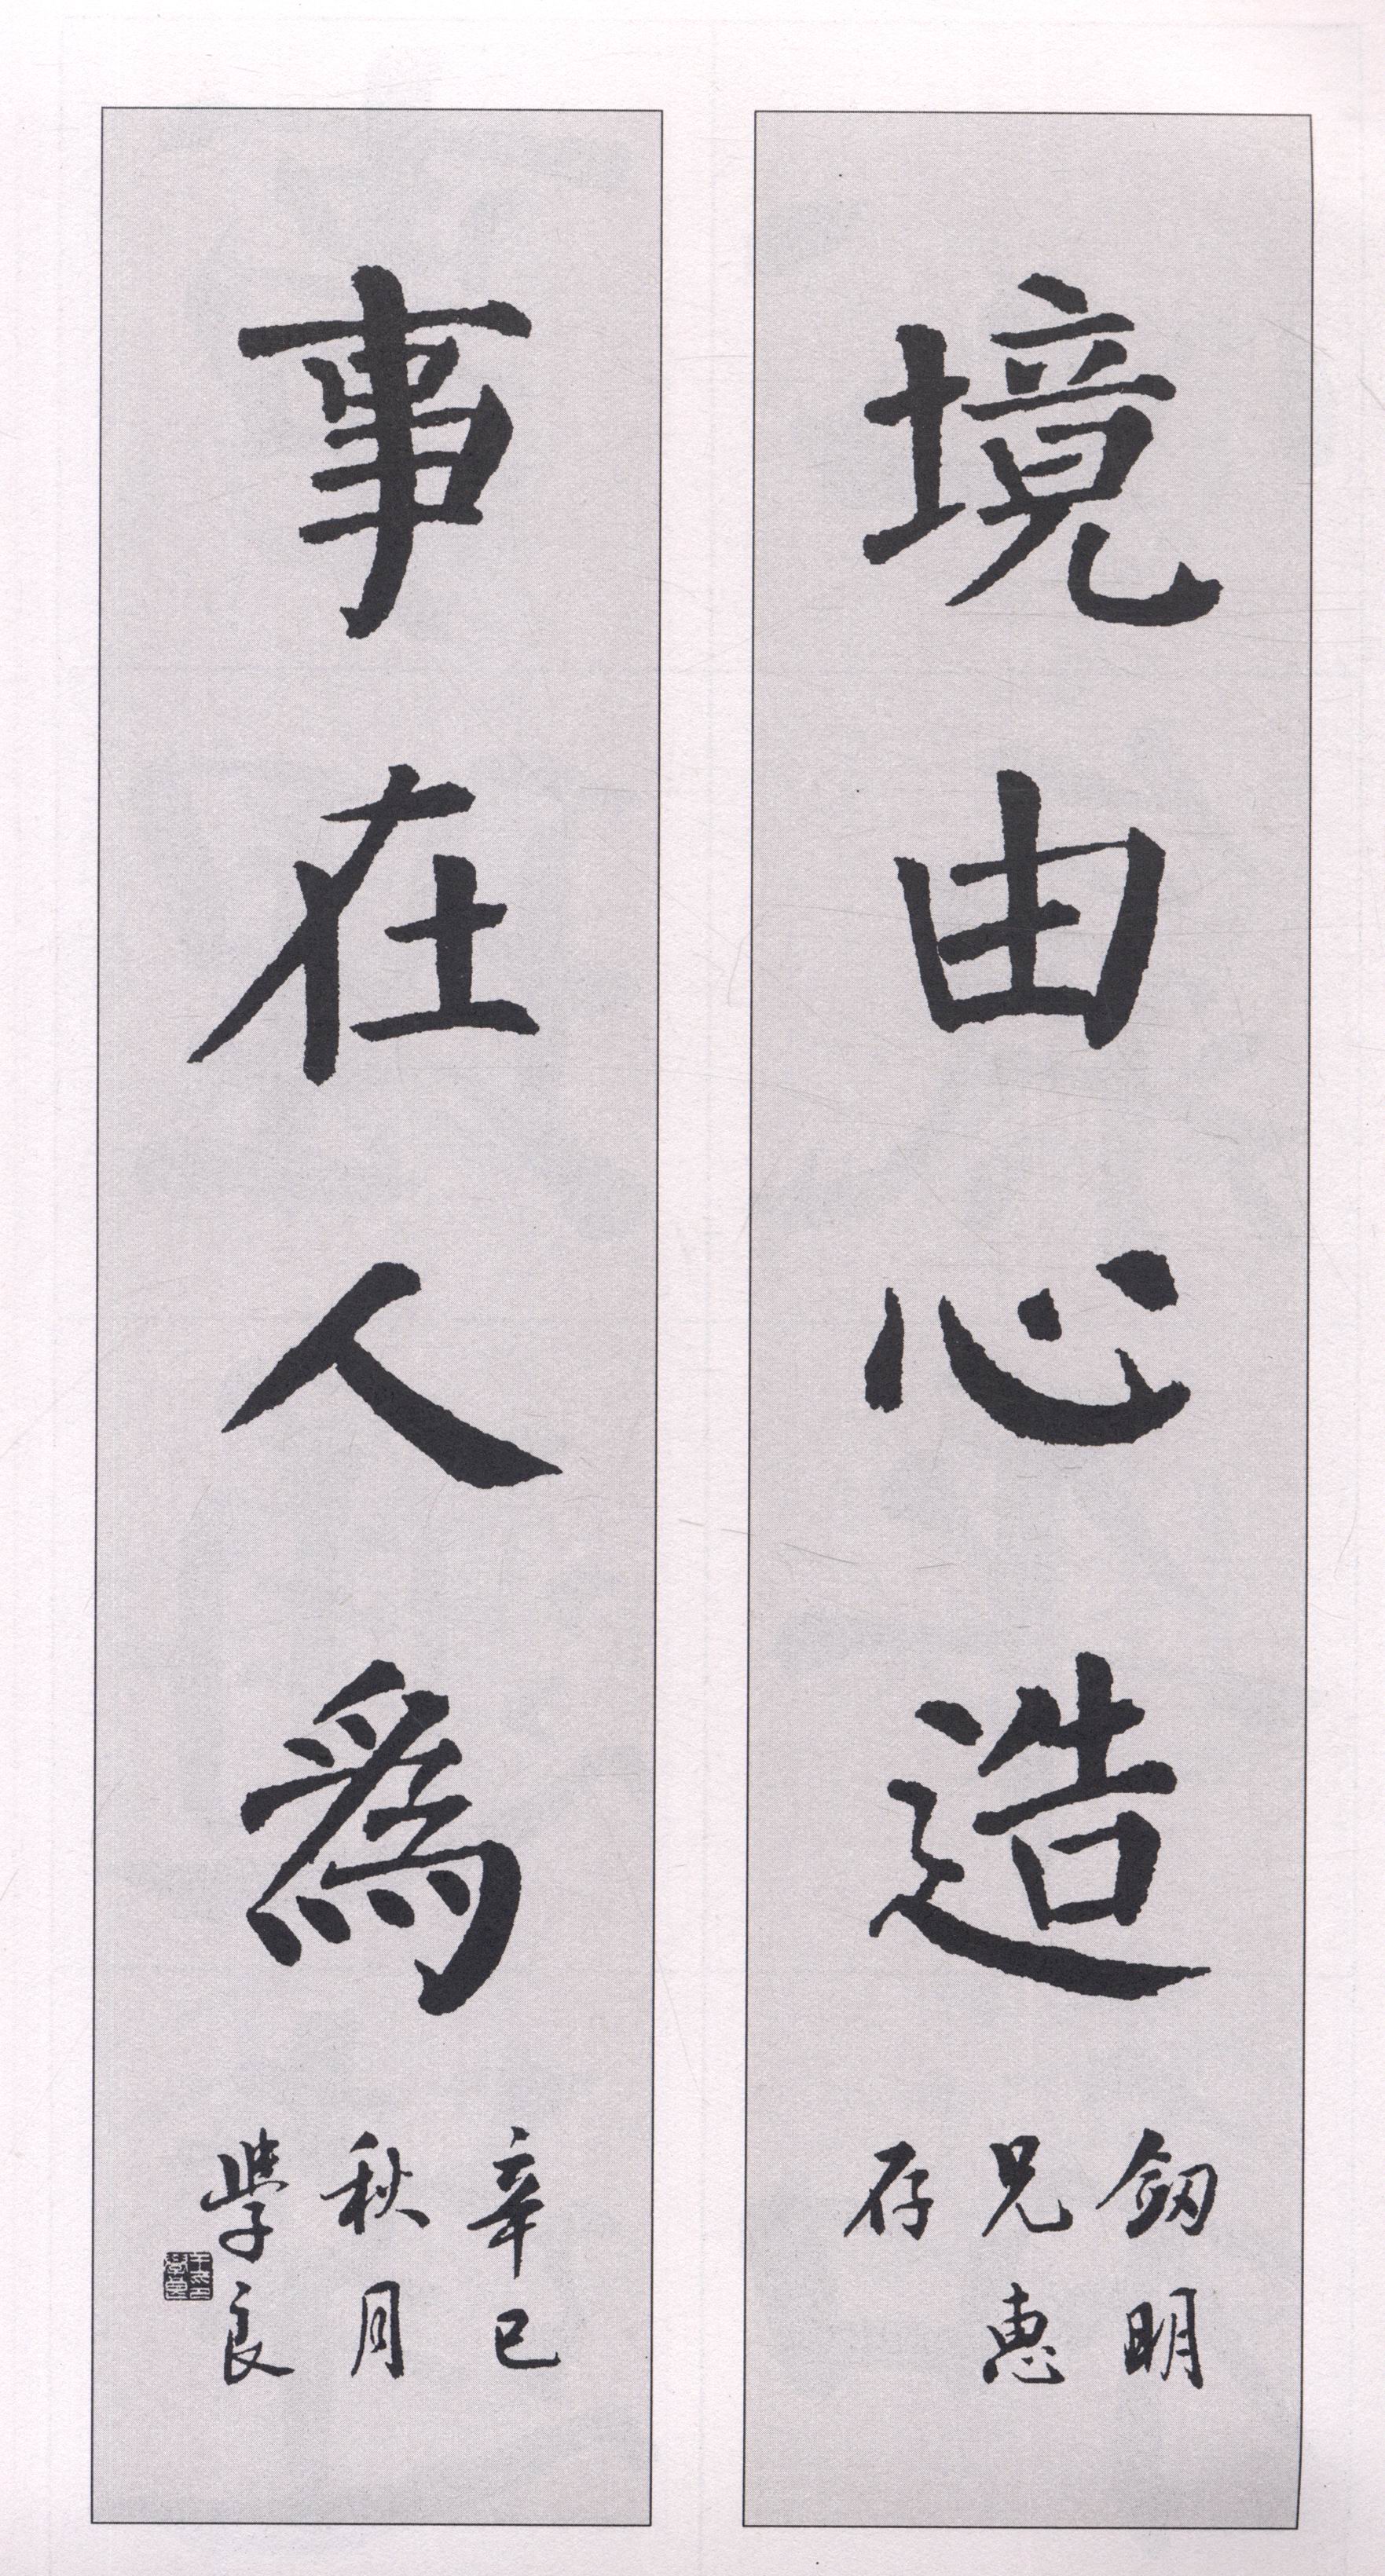 境由心造
釼明
兄惠
存
事在人爲
辛巳
秋月
學良